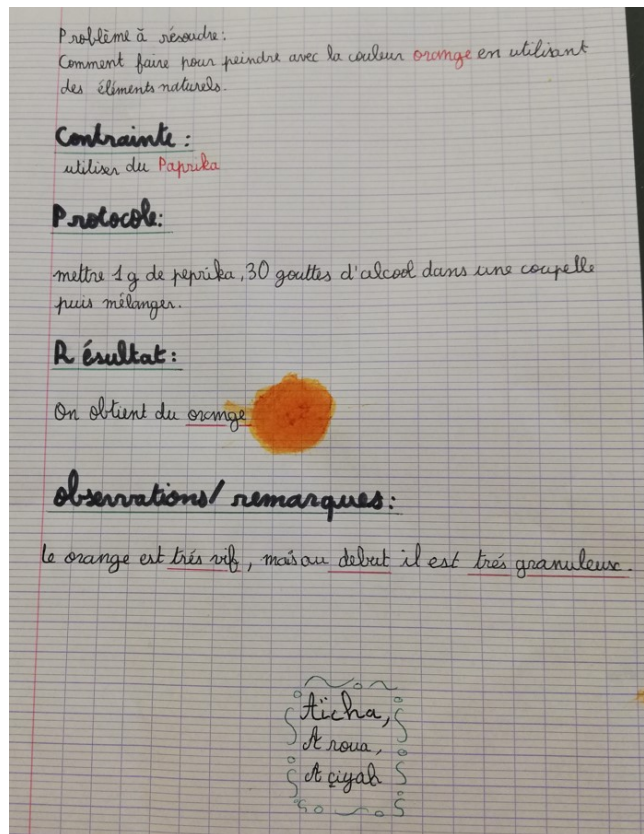 Problème à résoudre:
Comment faire pour peindre avec la couleur orange en utilisant
des éléments naturels.
Contrainte:
utiliser du Paprika
Protocole:
mettre 1g de peprika, 30 gouttes d'alcool dans une coupelle
puis mélanger.
Résultat:
On obtient du orange
observations/remarques:
le orange est trés vif, mais au debut il est trés granuleux.
Aïcha,
Aroua,
Açiyah